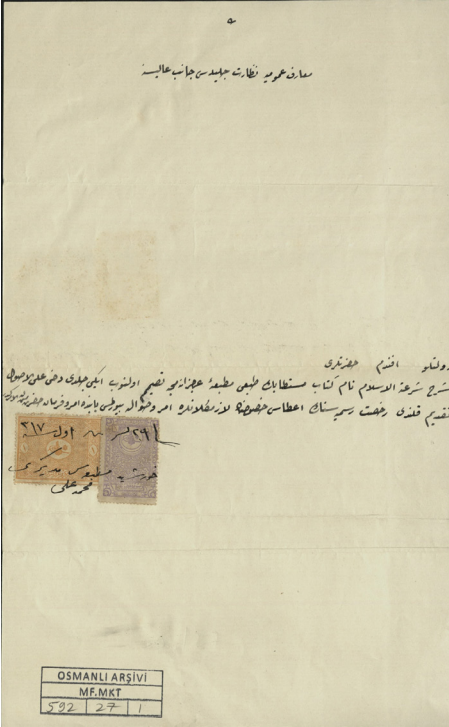 معارف عموميه نظارت جليله‌سى جانب عاليسنه
دولتلو افندم حضرتلرى
شرح شرعة الاسلام نام كتاب مستطابك طبعى مطبعۀ عاجزانه‌مجه تصميم اولنوب ايكى جلدى وجه على الاصول
تقديم قلندى رخصت رسميه‌سنك اعطاسى خصوصنك لازم كلانلره امر و حواله بيورلمسى بابنده امر و فرمان حضرت
٢٩ اول ٣١٧
خورشيد مطبعه‌سى مديرى
محمد على
OSMANLI ARŞİVİ
MF.MKT
592 27 1